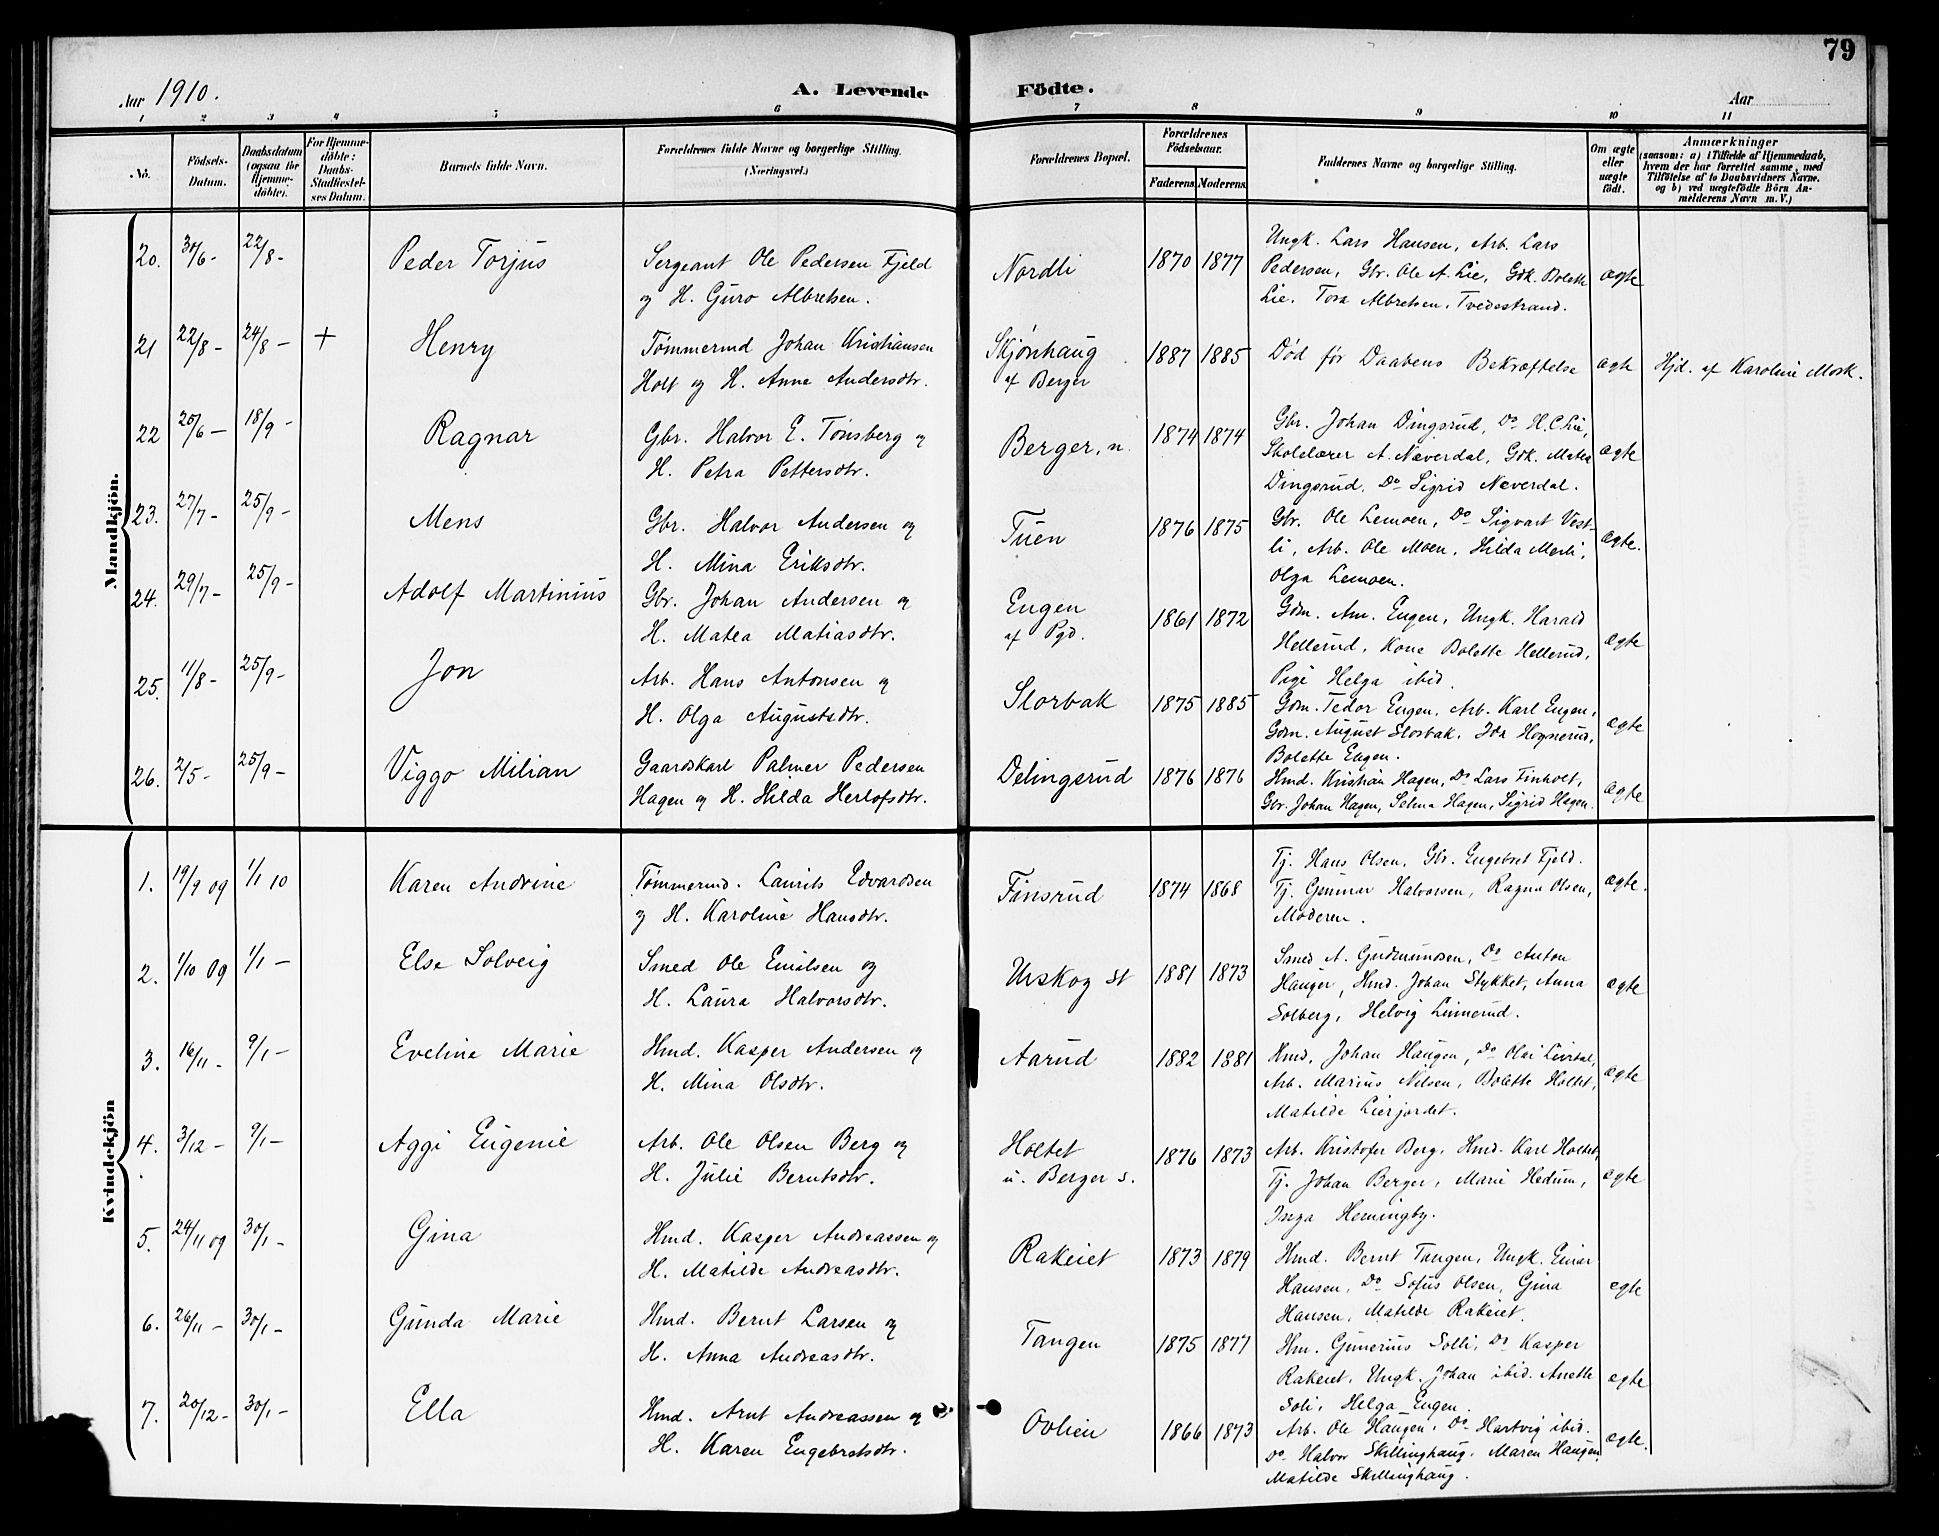 79
Aar 1910.
A. Levende Födte.
Aar
1 2 3 4 5 6 7 8 9 10 11
No.
Födsels-Datum.
Daabsdatum (ogsaa for Hjemmedöbte).
For Hjemmedöbte: Daabs-Stadfæstelses Datum.
Barnets fulde Navn.
Forældrenes fulde Navne og borgerlige Stilling. (Næringsvei.)
Forældrenes Bopæl.
Forældrenes Födselsaar.
Faderens. Moderens.
Faddernes Navne og borgerlige Stilling.
Om ægte eller uægte födt.
Anmærkninger
(saasom: a) i Tilfælde af Hjemmedaab,
hvem der har forrettet samme, med
Tilföielse af to Daabsvidners Navne.
og b) ved uægtefödte Börn An-
melderens Navn m. V.)
Mandkjön.
20. 30/6- 22/8- Peder Torjus
Sergeant Ole Pedersen Fjeld
og H. Guro Albretsen.
Nordli 1870 1877
Ungk. Lars Hansen, Arb. Lars
Pedersen, Gbr. Ole A. Lie, Gdk. Bolette
Lie. Tora Albretsen, Tvedestrand.
ægte
21 22/8- 24/8- + Henry
Tømmermd Johan Kristiansen
Holt og H. Anne Andersdtr.
Skjønhaug
af Berger
1887 1885 Død før Daabens Bekræftelse ægte Hjd. af Karoline Mork.
22 25/6- 18/9- Ragnar
Gbr. Halvor E. Tønsberg og
H. Petra Pettersdtr.
Berger, n. 1874 1874
Gbr. Johan Dingsrud, Do H. C. Lie,
Skolelærer A. Næverdal, Gdk. Matea
Dingsrud, Do Sigrid Næverdal.
ægte
23. 27/7- 25/9- Mens
Gbr. Halvor Andersen og
H. Mina Eriksdtr.
Tuen 1876 1875
Gbr. Ole Lemoen, Do Sigvart Vest-
li, Arb. Ole Moen, Hilda Merli,
Olga Lemoen.
ægte.
24. 29/7- 25/9- Adolf Martinius
Gbr. Johan Andersen og
H. Matea Matiasdtr.
Eugen
af Pgd.
1861 1872
Gdm. Am. Eugen, Ungk. Harald
Hellerud, Kone Bolette Hellerud,
Pige Helga ibid.
ægte
25. 11/8- 25/9- Jon
Arb. Hans Antonsen og
H. Olga Augustsdtr.
Slorbak 1875 1885
Gdm. Tedor Eugen, Arb. Karl Eugen,
Gdm. August Slorbak, Ida Hognerud,
Bolette Eugen.
ægte
26. 2/5- 25/9- Viggo Milian
Gaardskarl Palmer Pedersen
Hagen og H. Hilda Herlofsdtr.
Delingsrud 1876 1876
Hmd. Kristian Hagen, Do Lars Finholt,
Gbr. Johan Hagen, Selma Hagen, Sigrid Hagen.
ægte
Kvindekjön
1. 19/9 09 1/1 10 Karen Andrine
Tømmermd. Laurits Edvardsen
og H. Karoline Hansdtr.
Finsrud 1874 1868
Tj. Hans Olsen, Gbr. Engebret Fjeld.
Tj. Gunnar Halvorsen, Ragna Olsen,
Moderen.
ægte.
2. 1/10 09 1/1- Else Solveig
Smed Ole Emilsen og
H. Laura Halvorsdtr.
Urskog st 1881 1873
Smed A. Gudmundsen, Do Anton
Hauger, Hmd. Johan Stykket, Anna
Solberg, Helvig Linnerud.
ægte
3. 16/11- 9/1- Eveline Marie
Hmd. Kasper Andersen og
H. Mina Olsdtr.
Aarud 1882 1881
Hmd. Johan Haugen, Do Olai Liverdal,
Arb. Marius Nilsen, Bolette Holtet,
Matilde Lierjordet.
ægte
4. 3/12- 9/1- Aggi Eugenie
Arb. Ole Olsen Berg og
H. Julie Berntsdtr.
Holtet
u. Berger s.
1876 1873
Arb. Kristofer Berg, Hmd. Karl Holtet,
Tj. Johan Berger, Marie Hedum,
Inga Hemingby.
ægte
5. 24/11 09 30/1- Gina
Hmd. Kasper Andreassen og
H. Matilde Andreasdtr.
Rakeiet 1873 1879
Hmd. Bernt Tangen, Ungk. Einar
Hansen, Do Sofus Olsen, Gina
Hansen, Matilde Rakeiet.
ægte
6. 26/11- 30/1- Gunda Marie
Hmd. Bernt Larsen og
H. Anna Andreasdtr.
Tangen 1875 1877
Hm. Gunerius Solli, Do Kasper
Rakeiet, Ungk. Johan ibid. Anette
Soli, Helga Eugen.
ægte
7. 20/12- 30/1- Ella
Hmd. Arnt Andreassen og
H. Karen Engebretsdtr.
Ovlien 1866 1873
Arb. Ole Haugen, Do Hartvig ibid.
Do Halvor Skillinghaug, Maren Haugen,
Matilde Skillinghaug.
ægte.